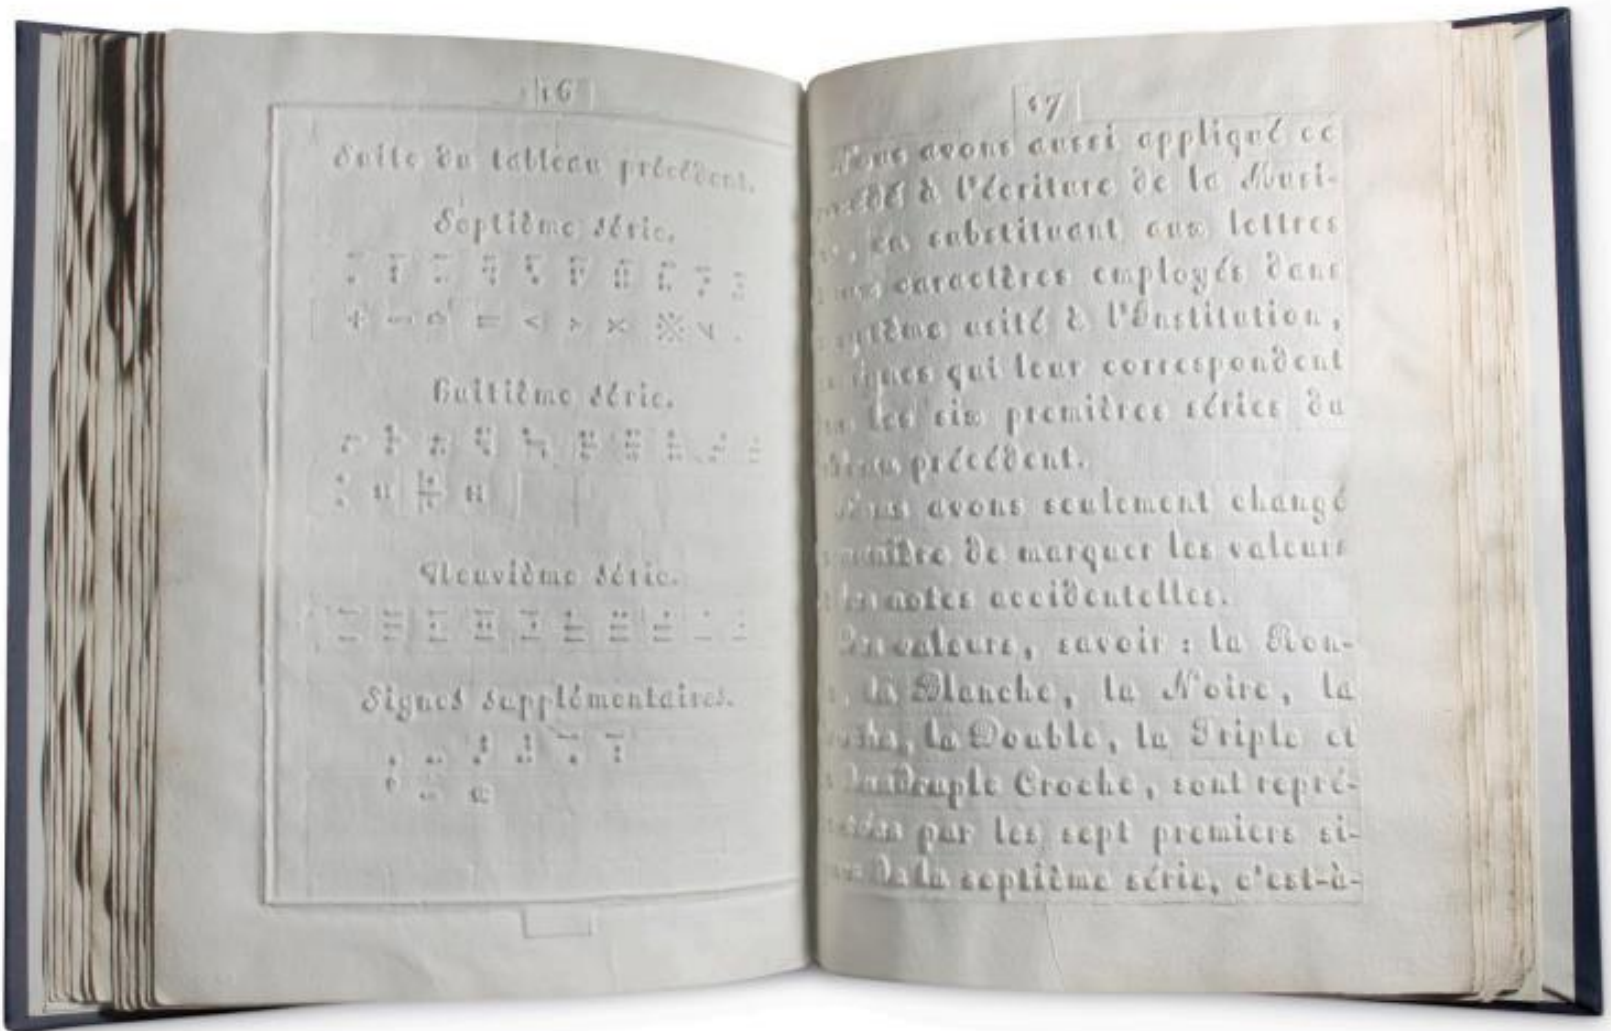 16
Suite du tableau précédent.
Septième série.
+ = < > × ※
Huitième série.
Neuvième série.
Signes supplémentaires.
17
Nous avons aussi appliqué ce
à l'écriture de la Musi-
, en substituant aux lettres
caractères employés dans
système usité à l'Institution,
signes qui leur correspondent
les six premières séries du
précédent.
Nous avons seulement changé
manière de marquer les valeurs
notes accidentelles.
Les valeurs, savoir : la Ron-
, la Blanche, la Noire, la
, la Double, la Triple et
Quadruple Croche, sont repré-
par les sept premiers si-
de la septième série, c'est-à-